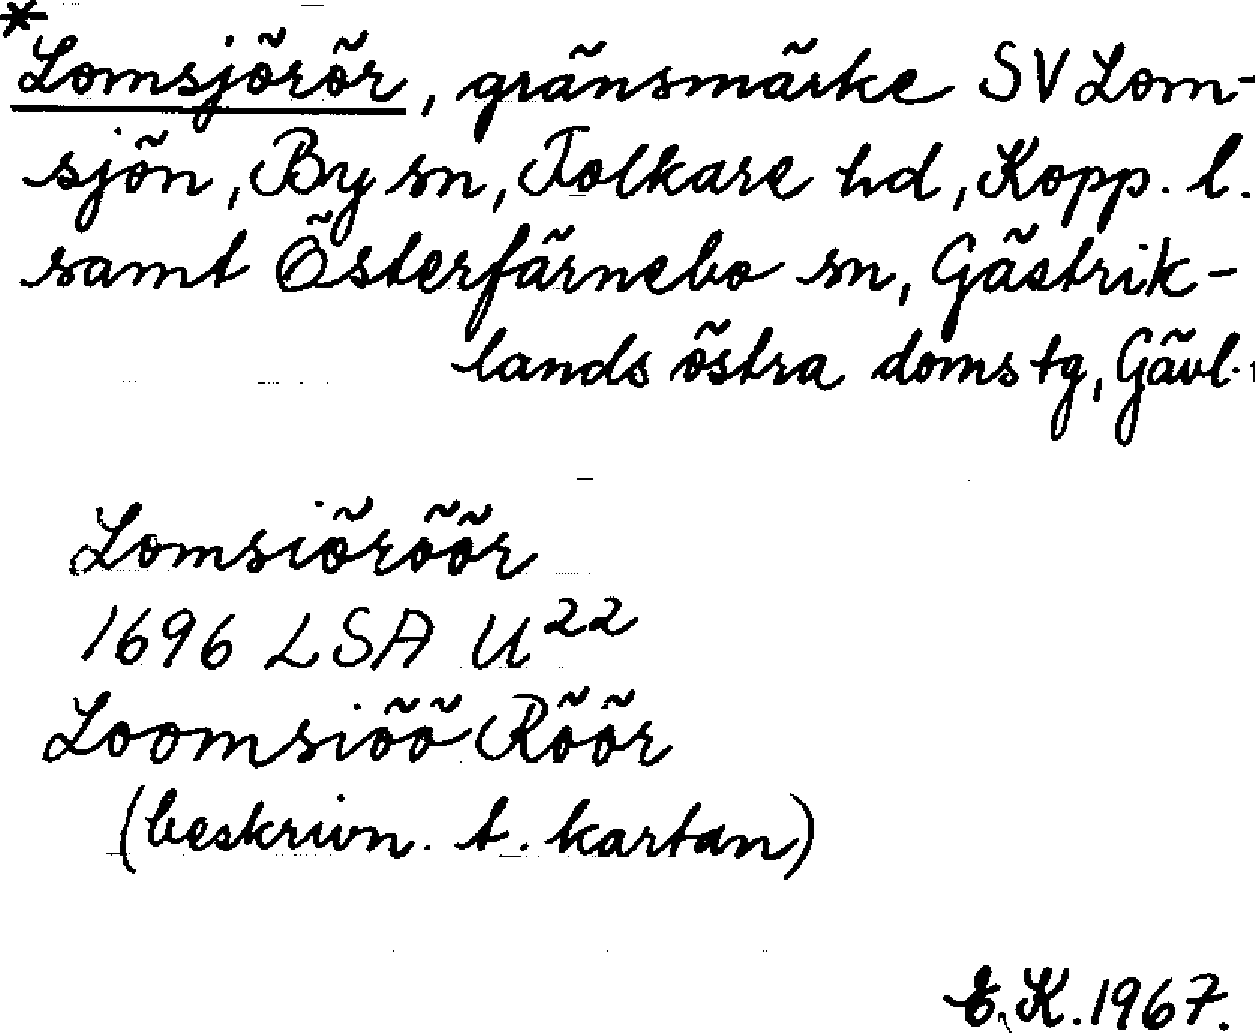 *
Lomsjörör, gränsmärke SV Lom-
sjön, By sn, Folkare hd, Kopp. l.
samt Österfärnebo sn, Gästrik-
lands östra domstg, Gävl.
Lomsiöröör
1696 LSA U²²
Loomsiöö Röör
(beskrivn. t. kartan)
E.K. 1967.